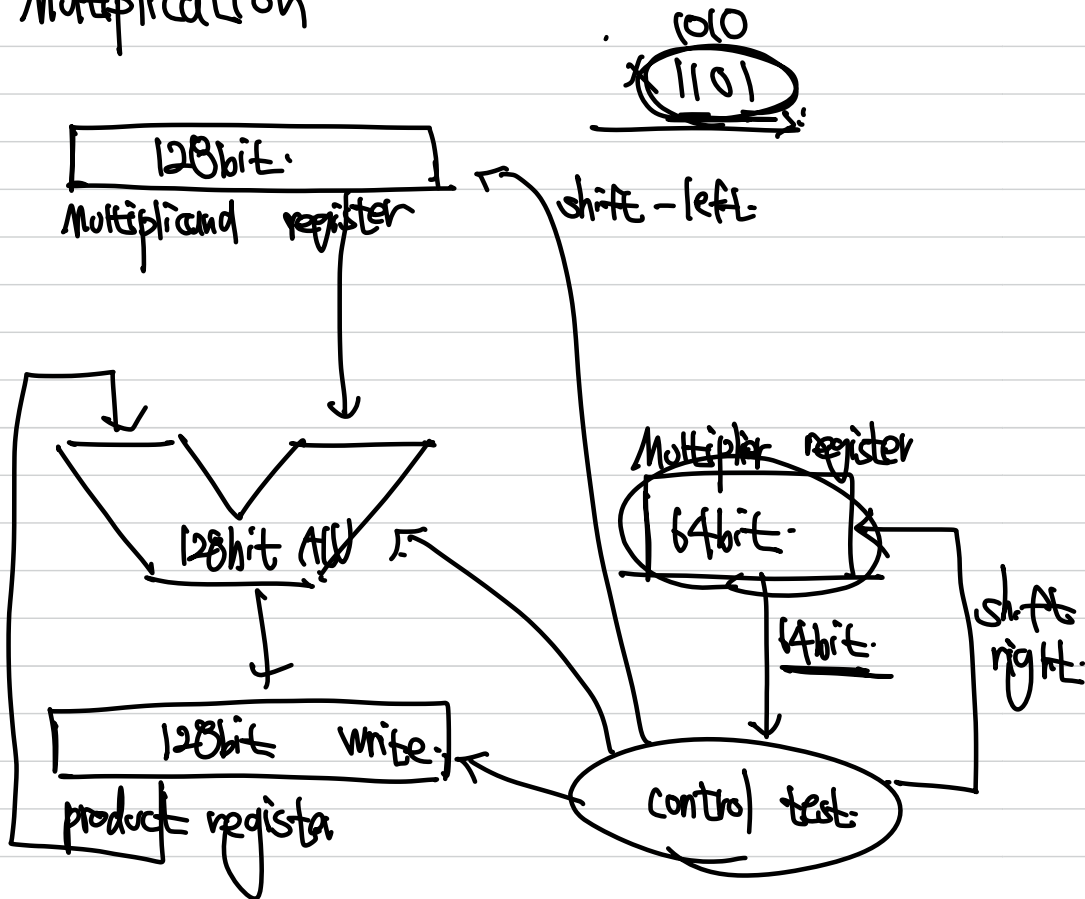 Multiplication
1010
x 1101
128bit.
Multiplicand register
shift-left.
Multiplier register
64bit.
128bit ALU
64bit.
shift
right.
128bit write.
product register
control test.